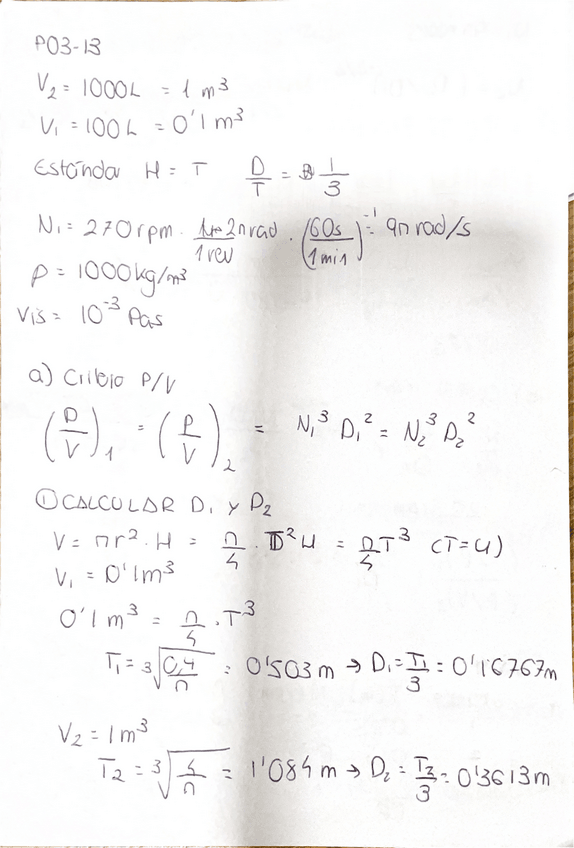 P03-13
V₂ = 1000L = 1 m³
V₁ = 100L = 0'1 m³
Estánda H = T D/T = 1/3
N₁ = 270rpm · 2π rad/1 rev · (60s/1 min)⁻¹ = 9π rad/s
ρ = 1000kg/m³
Vis = 10⁻³ Pas
a) Critio P/V
(P/V)₁ = (P/V)₂ = N₁³ D₁² = N₂³ D₂²
① CALCULAR D₁ Y D₂
V = πr² · H = π/4 · D²H = π/4 T³ (T=H)
V₁ = 0'1m³
0'1 m³ = π/4 · T³
T₁ = ³√(0,4/π) = 0'503 m → D₁ = T₁/3 = 0'16767m
V₂ = 1m³
T₂ = ³√(4/π) = 1'084 m → D₂ = T₂/3 = 0'3613m